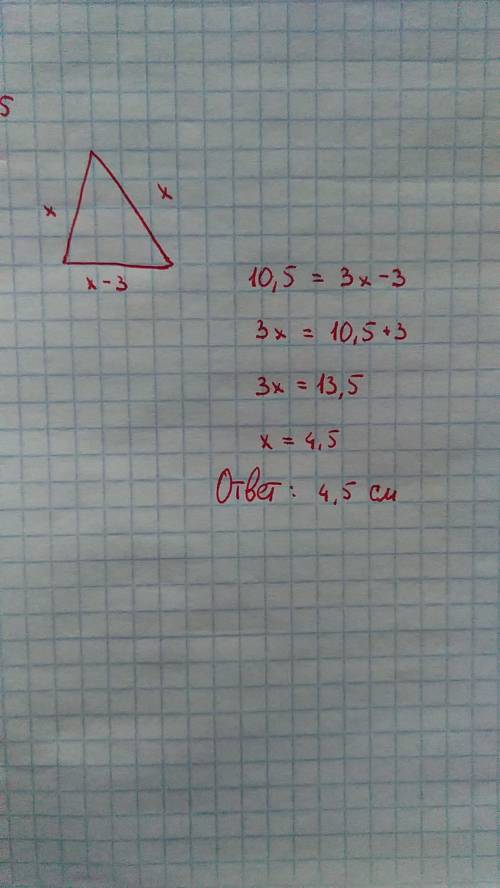 5
x
x
x - 3
10,5 = 3x - 3
3x = 10,5 + 3
3x = 13,5
x = 4,5
Ответ: 4,5 см